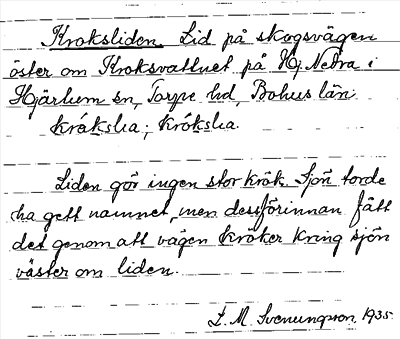 Kroksliden. Lid på skogsvägen
öster om Kroksvattnet på Hj. Nedra i
Hjärtum sn, Torpe hd, Bohus län.
kråkslia; krókslia.
Liden gör ingen stor krök. Sjön torde
ha gett namnet, men dessförinnan fått
det genom att vägen kröker kring sjön
väster om liden.
L. M. Svenungsson 1935